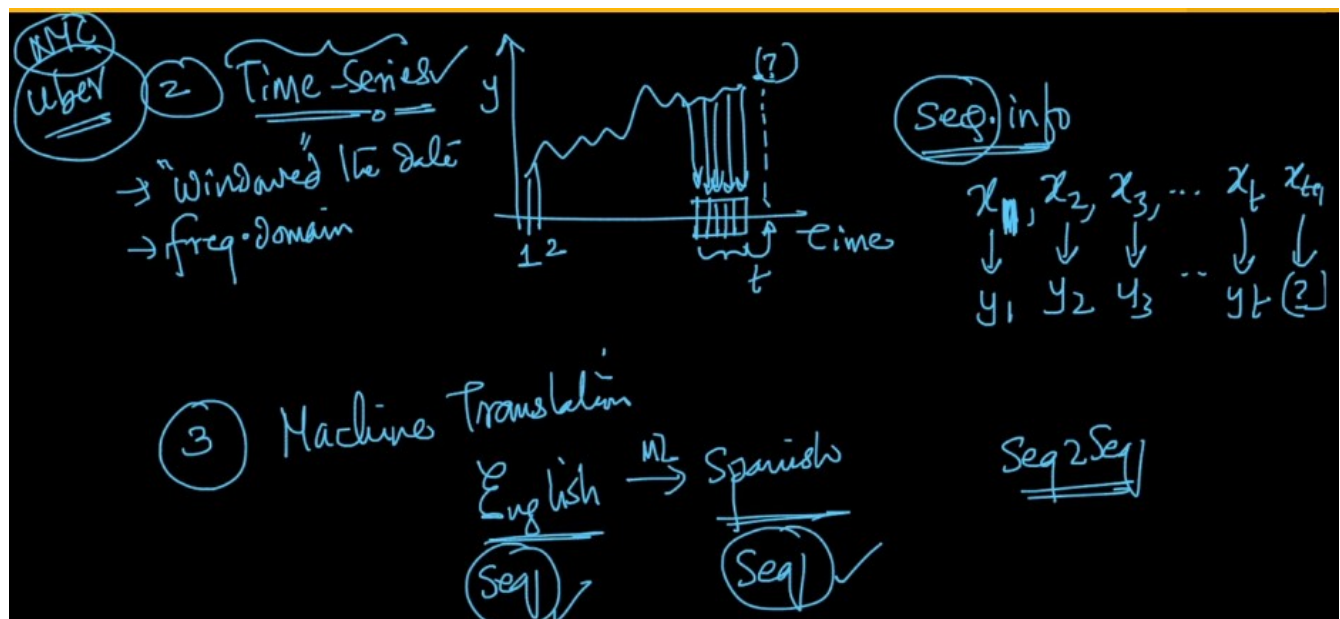 NYC
Uber
2 Time-Series
→ "Windowed" the data
→ freq. domain
y
(?)
1 2
t
Time
Seq. info
x₁, x₂, x₃, ... xₜ xₜ₊₁
y₁ y₂ y₃ .. yₜ (?)
3 Machine Translation
English ML→ Spanish
Seq Seq
Seq2Seq